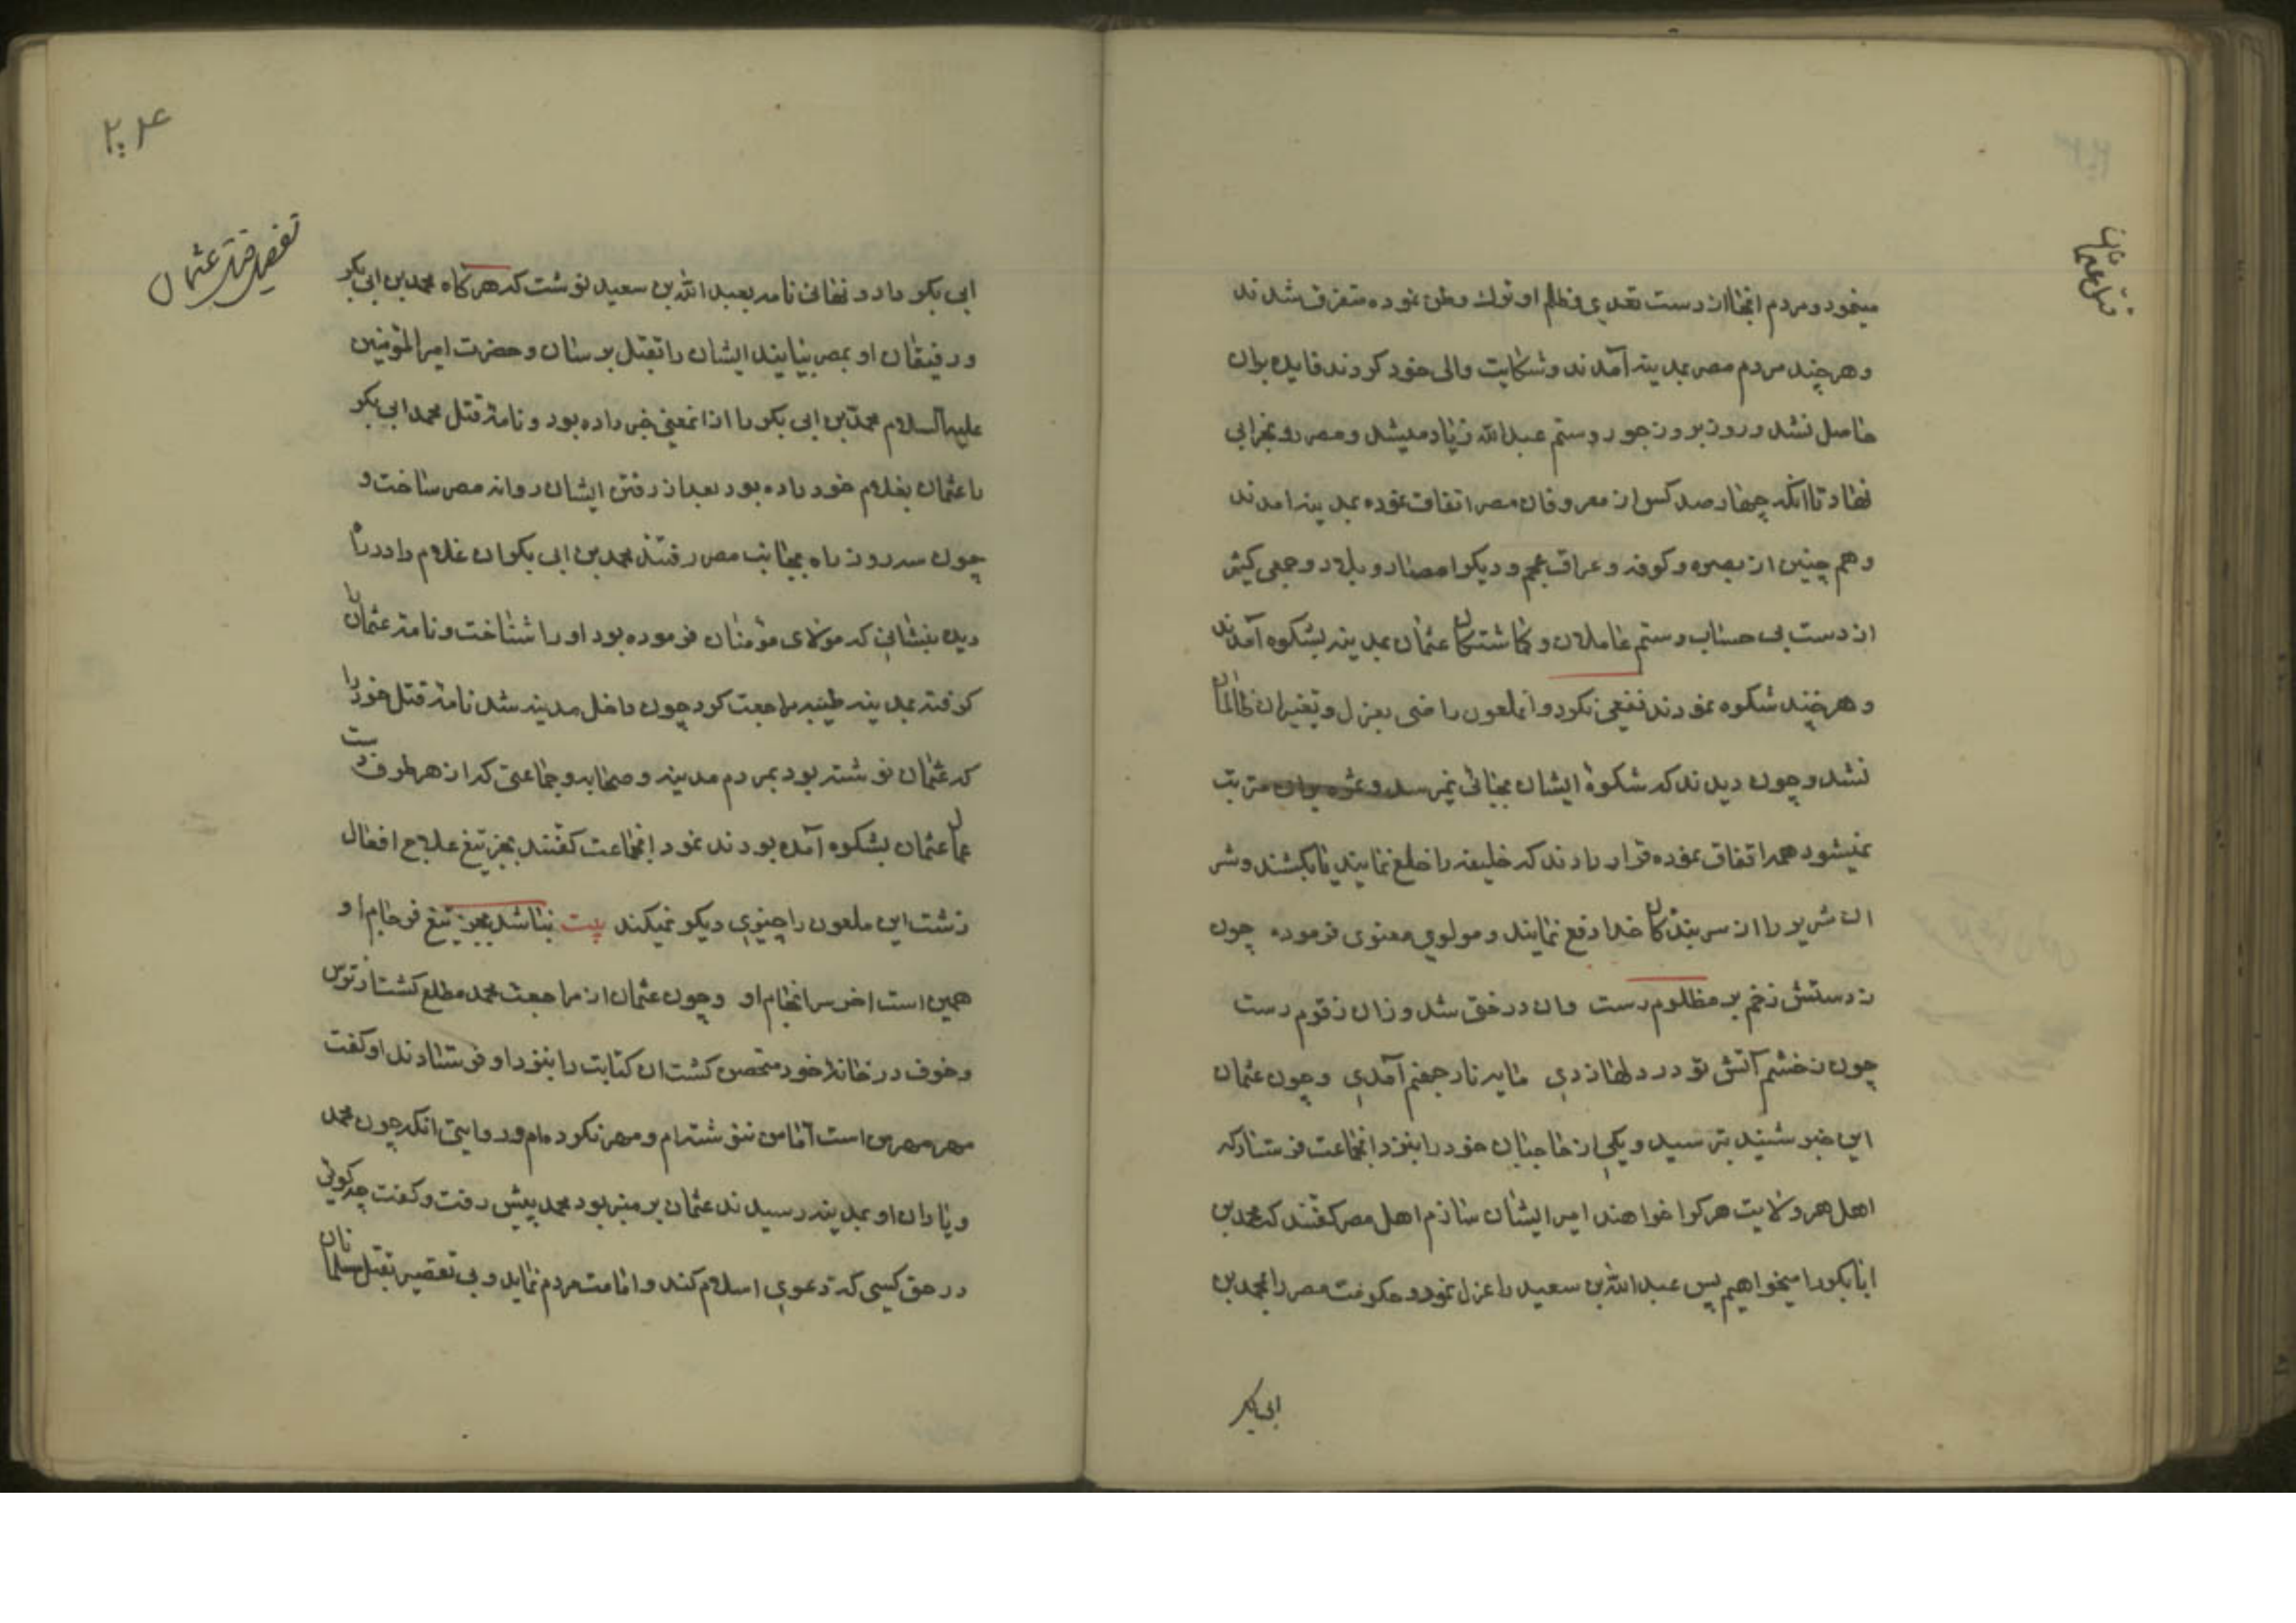 قتل عثمان
مینمود و مردم انجا از دست تعدی و ظلم او ترك وطن نموده متفرق شدند
و هر چند مردم مصر بمدینه آمدند و شکایت والی خود کردند فایده بران
حاصل نشد و روز بروز جور و ستم عبدالله زیاد میشد و مصر رو بخرابی
نهاد تا انکه چهار صد کس از معروفان مصر اتفاق نموده بمدینه امدند
و هم چنین از بصره و کوفه و عراق عجم و دیکر امصار و بلاد و جمعی کثیر
از دست بی حساب و ستم عاملان و کماشتکان عثمان بمدینه بشکوه آمدند
و هر چند شکوه نمودند نفعی نکرد و انملعون راضی بعزل و تغییر ان ظالمان
نشد و چون دیدند که شکوهٔ ایشان بجائی نمیرسد و ثمره بران مترتب
نمیشود همه اتفاق نموده قرار دادند که خلیفه را خلع نمایند یا بکشند و شر
ان شریر را از سر بندکان خدا دفع نمایند و مولوی معنوی فرموده چون
ز دستش زخم بر مظلوم رست وان درختی شد و زان زقوم رست
چون ز خشم آتش تو در دلها زدی مایه نار جهنم آمدی و چون عثمان
این خبر شنید بترسید و یکی از حاجبان خود را بنزد انجماعت فرستاد که
اهل هر ولایت هر کرا خواهند امیر ایشان سازم اهل مصر کفتند که محمد بن
ابابکر را میخواهیم پس عبدالله بن سعید را عزل نمود و حکومت مصر را بمحمد بن
ابی بکر
۲۰۴
تفصیل قتل عثمان
ابی بکر داد و نهانی نامه بعبد الله بن سعید نوشت که هر کاه محمد بن ابی بکر
و رفیقان او بمصر بیایند ایشان را بقتل برسان و حضرت امیرالمؤمنین
علیه السلام محمد بن ابی بکر را از انمعنی خبر داده بود و نامهٔ قتل محمد ابی بکر
را عثمان بغلام خود داده بود بعد از رفتن ایشان روانه مصر ساخت و
چون سه روز راه بجانب مصر رفتند محمد بن ابی بکر ان غلام را در راه
دید بنشانی که مولای مؤمنان فرموده بود او را شناخت و نامه عثمان را
کرفته بمدینه طیبه مراجعت کرد چون داخل مدینه شد نامهٔ قتل خود را
که عثمان نوشته بود بمردم مدینه و صحابه و جماعتی که از هر طرف بدست
عمال عثمان بشکوه آمده بودند نمود انجماعت کفتند بجز تیغ علاج افعال
زشت این ملعون را چیزی دیکر نمیکند بیت نباشد بجز تیغ فرجام او
همین است اخر سرانجام او و چون عثمان از مراجعت محمد مطلع کشت از ترس
و خوف در خانهٔ خود متحصن کشت ان کتابت را بنزد او فرستادند او کفت
مهر مهر من است اما من ننوشته‌ام و مهر نکرده‌ام و روایتی انکه چون محمد
و یاران او بمدینه رسیدند عثمان بر منبر بود محمد پیش رفت و کفت چه کوئی
در حق کسی که دعوی اسلام کند و امامت مردم نماید و بی تقصیر بقتل مسلمانان